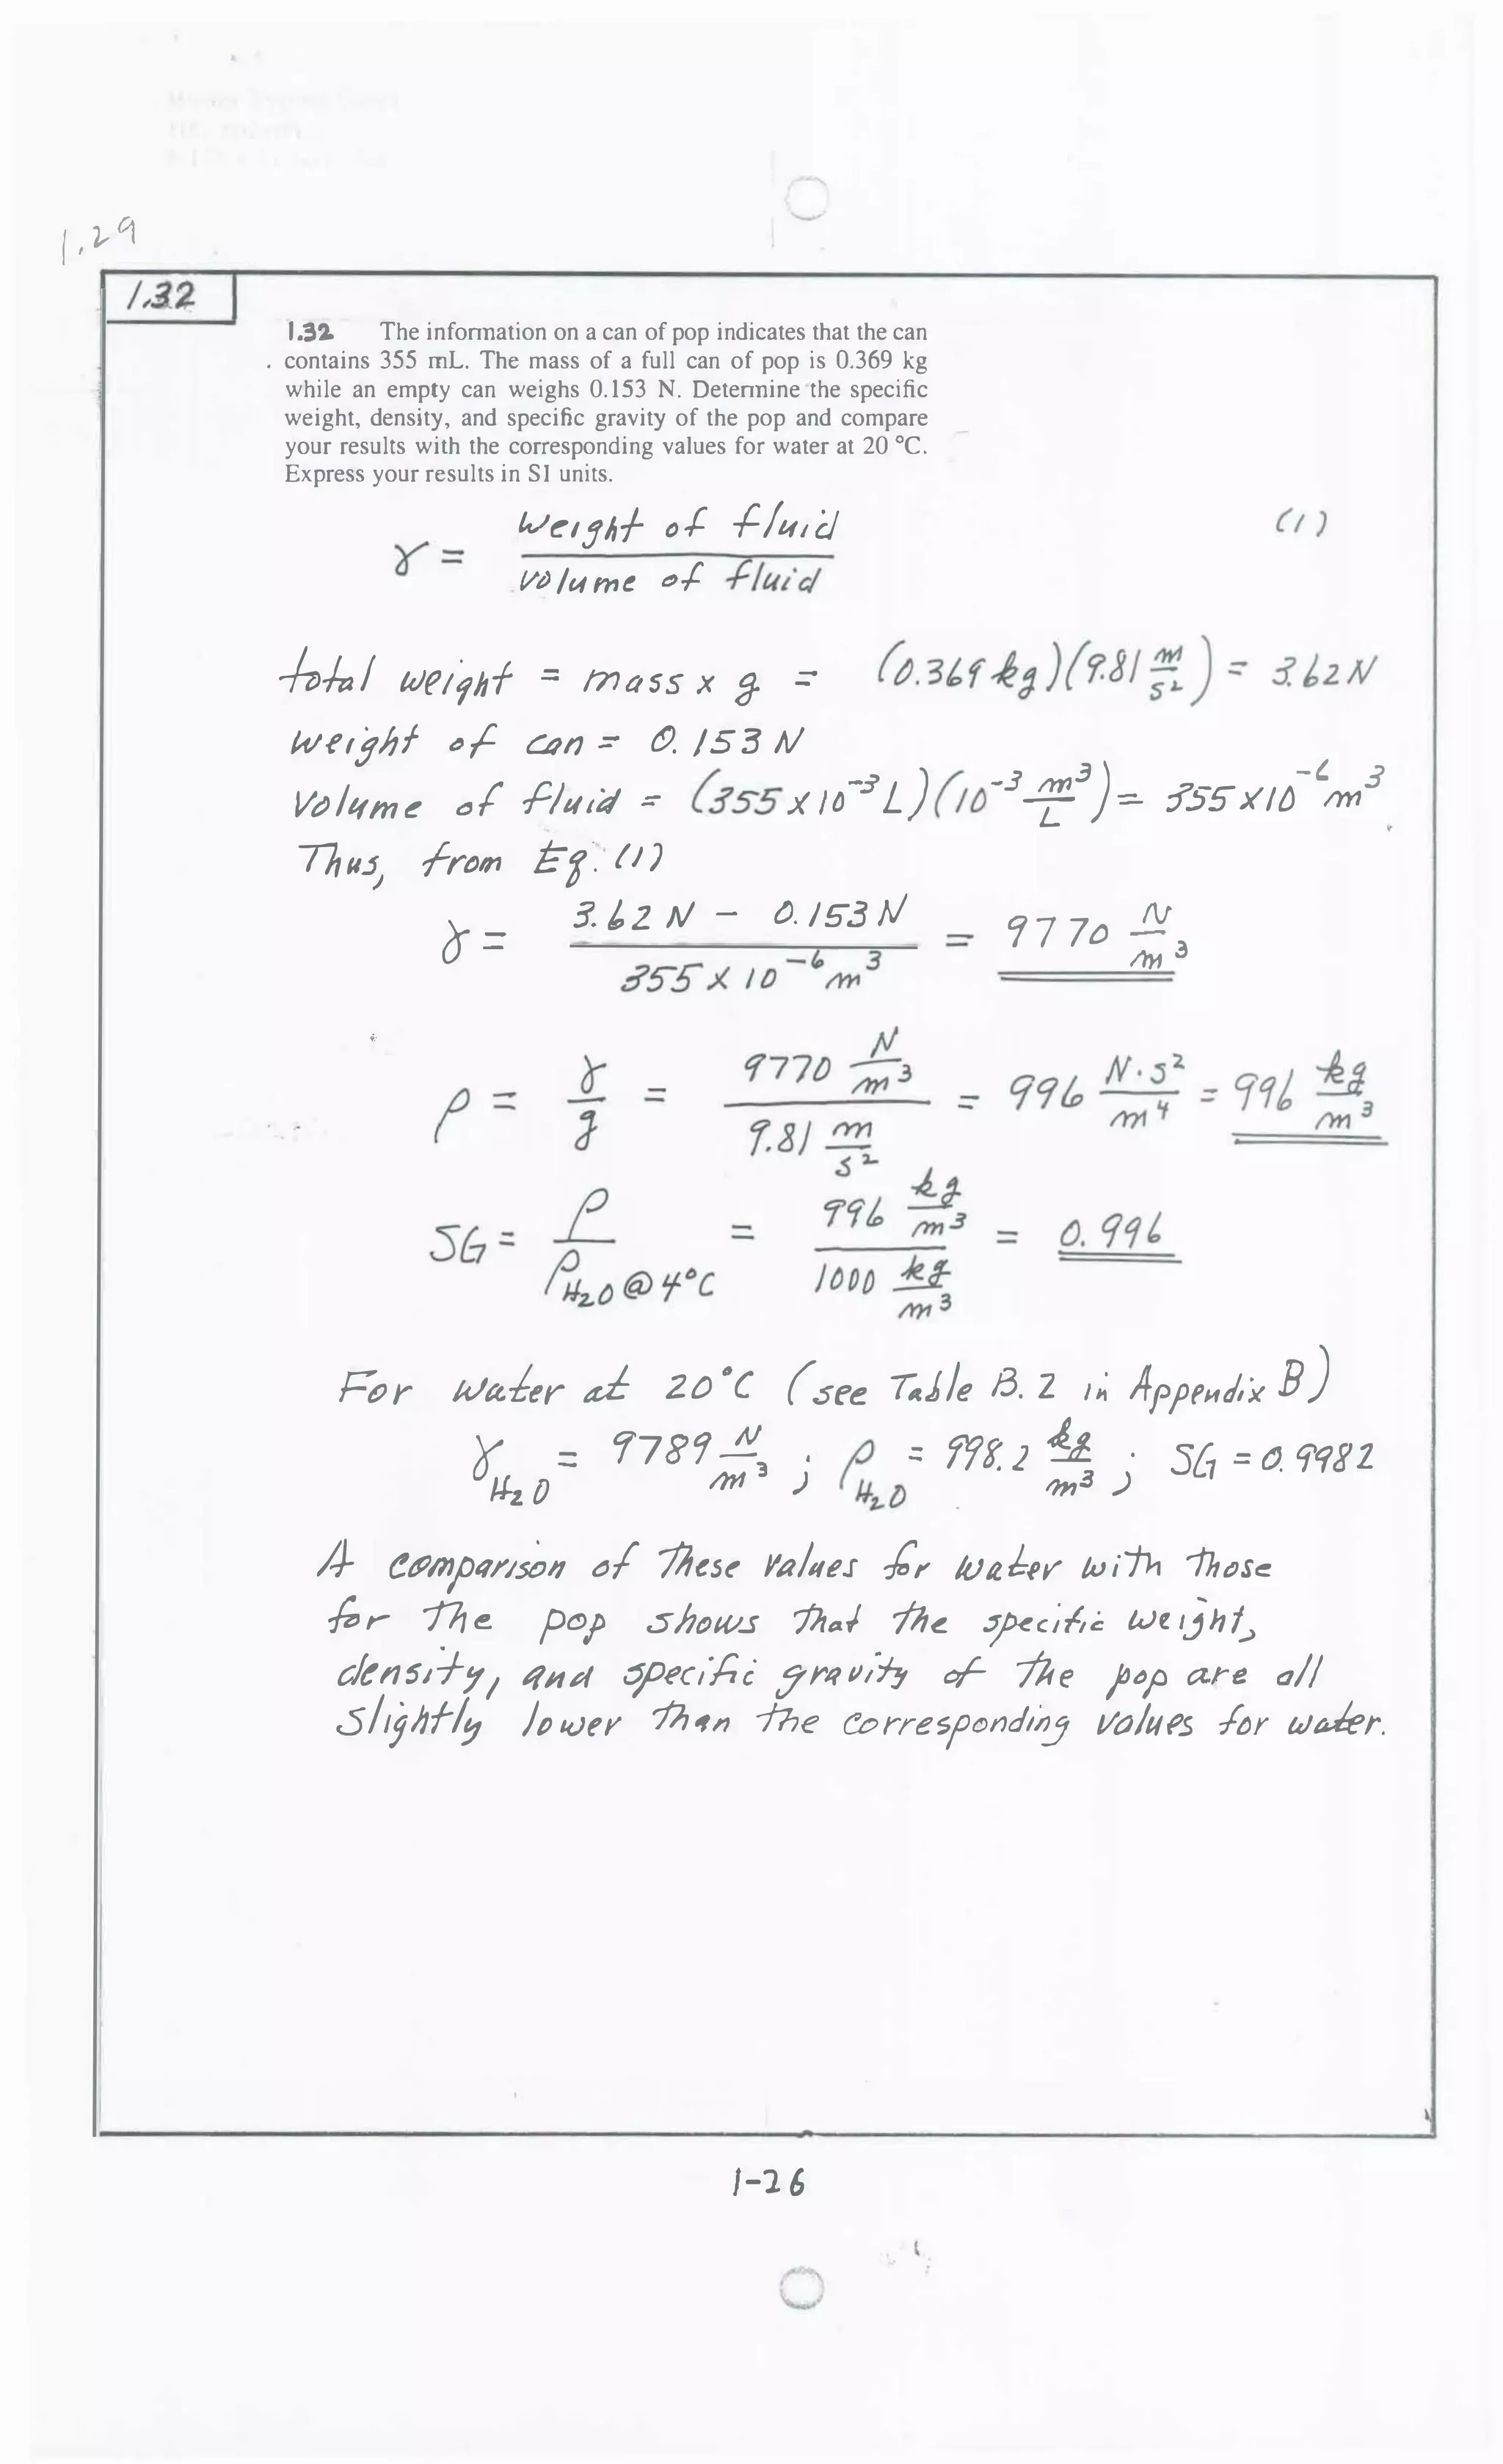 1.29
1.32
1.32 The information on a can of pop indicates that the can
contains 355 mL. The mass of a full can of pop is 0.369 kg
while an empty can weighs 0.153 N. Determine the specific
weight, density, and specific gravity of the pop and compare
your results with the corresponding values for water at 20 °C.
Express your results in SI units.
γ = weight of fluid / volume of fluid (1)
total weight = mass x g = (0.369 kg)(9.81 m/s²) = 3.62 N
weight of can = 0.153 N
volume of fluid = (355 x 10⁻³ L)(10⁻³ m³/L) = 355 x 10⁻⁶ m³
Thus, from Eq. (1)
γ = 3.62 N - 0.153 N / 355 x 10⁻⁶ m³ = 9770 N/m³
ρ = γ/g = 9770 N/m³ / 9.81 m/s² = 996 N·s²/m⁴ = 996 kg/m³
SG = ρ / ρH₂O @ 4°C = 996 kg/m³ / 1000 kg/m³ = 0.996
For water at 20°C (see Table B.2 in Appendix B)
γH₂O = 9789 N/m³ ; ρH₂O = 998.2 kg/m³ ; SG = 0.9982
A comparison of these values for water with those
for the pop shows that the specific weight,
density, and specific gravity of the pop are all
slightly lower than the corresponding values for water.
1-26